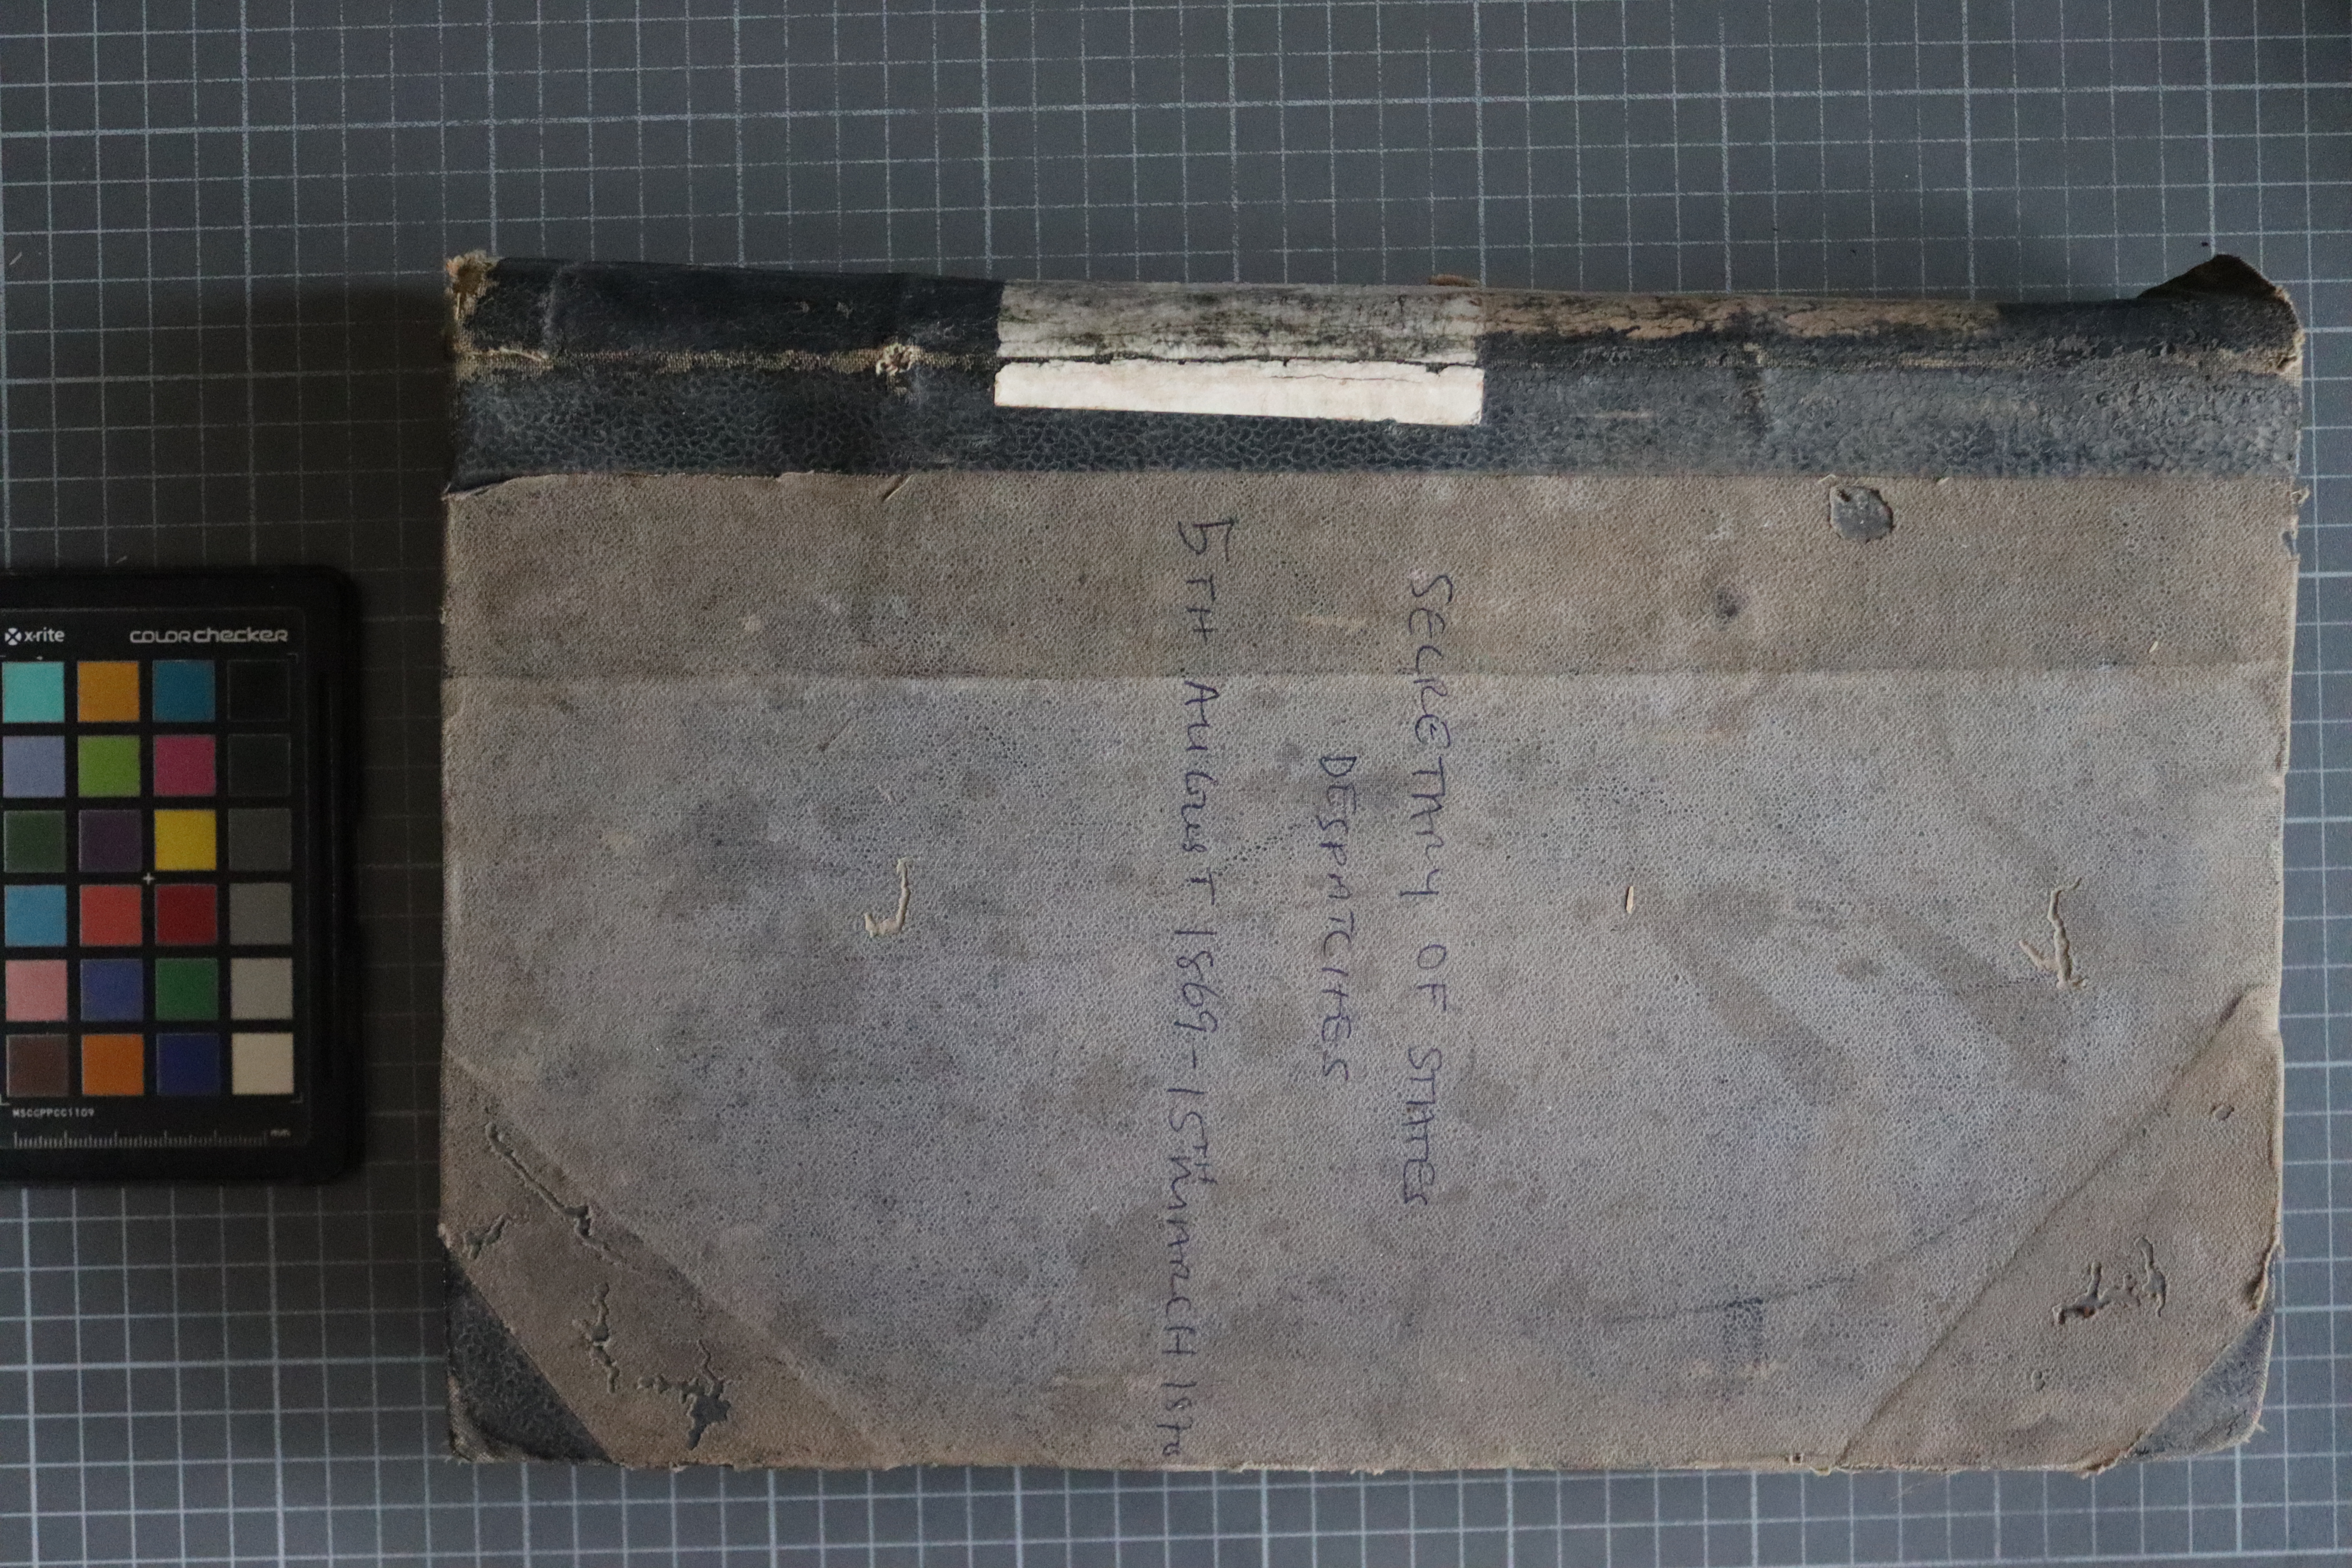 SECRETARY OF STATES
DESPATCHES
5TH AUGUST 1869 - 15TH MARCH 1870
x-rite
colorchecker
MSCCPPCC1109
mm